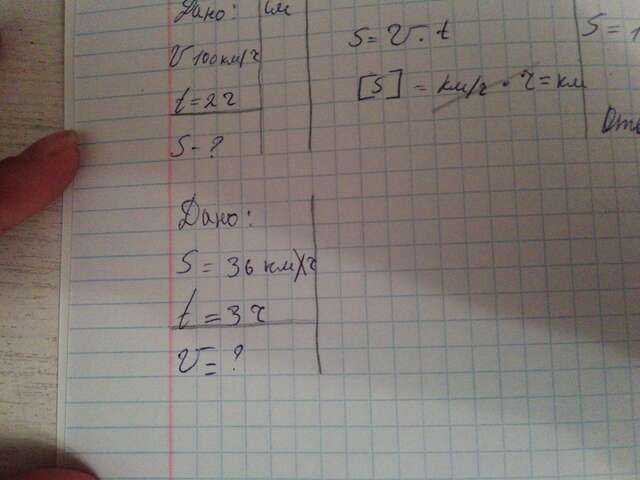 Дано:
V 100км/ч
t = 2ч
S - ?
S = V · t
[S] = км/ч · ч = км
S = 1
Отв
Дано:
S = 36 км/ч
t = 3ч
V = ?